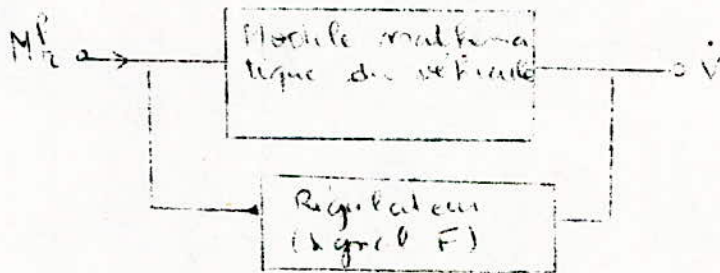 M_r^P
Modèle mathéma
tique du véhicule
V̇
Régulateur
(signal F)